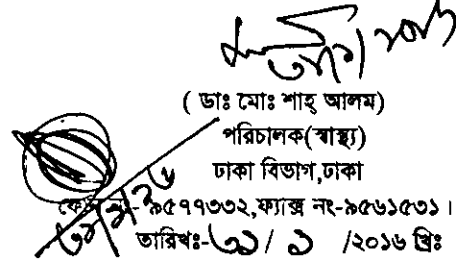 ( ডাঃ মোঃ শাহ্ আলম)
পরিচালক(স্বাস্থ্য)
ঢাকা বিভাগ,ঢাকা
ফোন নং-৯৫৭৭৩৩২,ফ্যাক্স নং-৯৫৬১৫৩১।
তারিখঃ-৩১/ ১ /২০১৬ খ্রিঃ